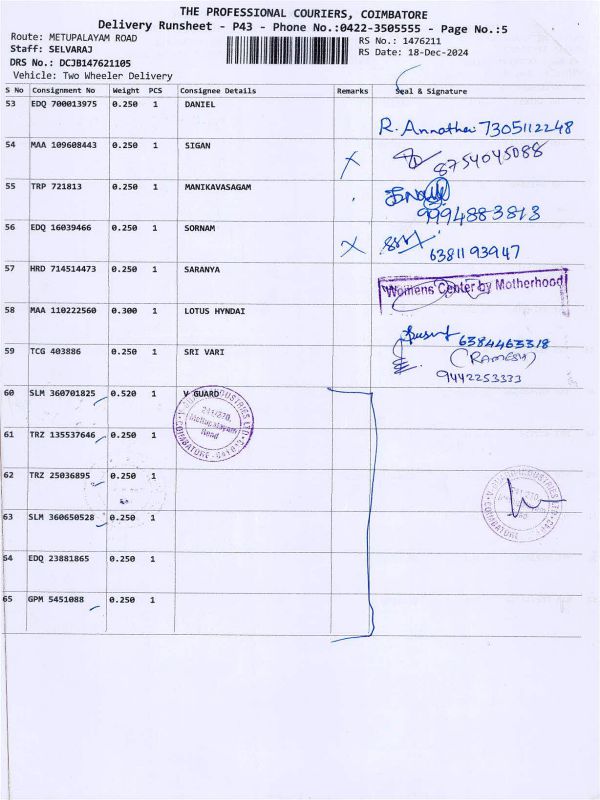 THE PROFESSIONAL COURIERS, COIMBATORE
Delivery Runsheet - P43 - Phone No.:0422-3505555 - Page No.:5
Route: METUPALAYAM ROAD RS No.: 1476211
Staff: SELVARAJ RS Date: 18-Dec-2024
DRS No.: DCJB147621105
Vehicle: Two Wheeler Delivery
S No Consignment No Weight PCS Consignee Details Remarks Seal & Signature
53 EDQ 700013975 0.250 1 DANIEL
7305112248
54 MAA 109608443 0.250 1 SIGAN X
8754045088
55 TRP 721813 0.250 1 MANIKAVASAGAM
9994883813
56 EDQ 16039466 0.250 1 SORNAM X
6381193947
57 HRD 714514473 0.250 1 SARANYA
Womens Center by Motherhood
58 MAA 110222560 0.300 1 LOTUS HYNDAI
6384463318
59 TCG 403886 0.250 1 SRI VARI
(RAMESH)
9442253333
60 SLM 360701825 0.520 1 V GUARD
61 TRZ 135537646 0.250 1
241/270,
Mettupalayam
Road
62 TRZ 25036895 0.250 1
63 SLM 360650528 0.250 1
64 EDQ 23881865 0.250 1
65 GPM 5451088 0.250 1